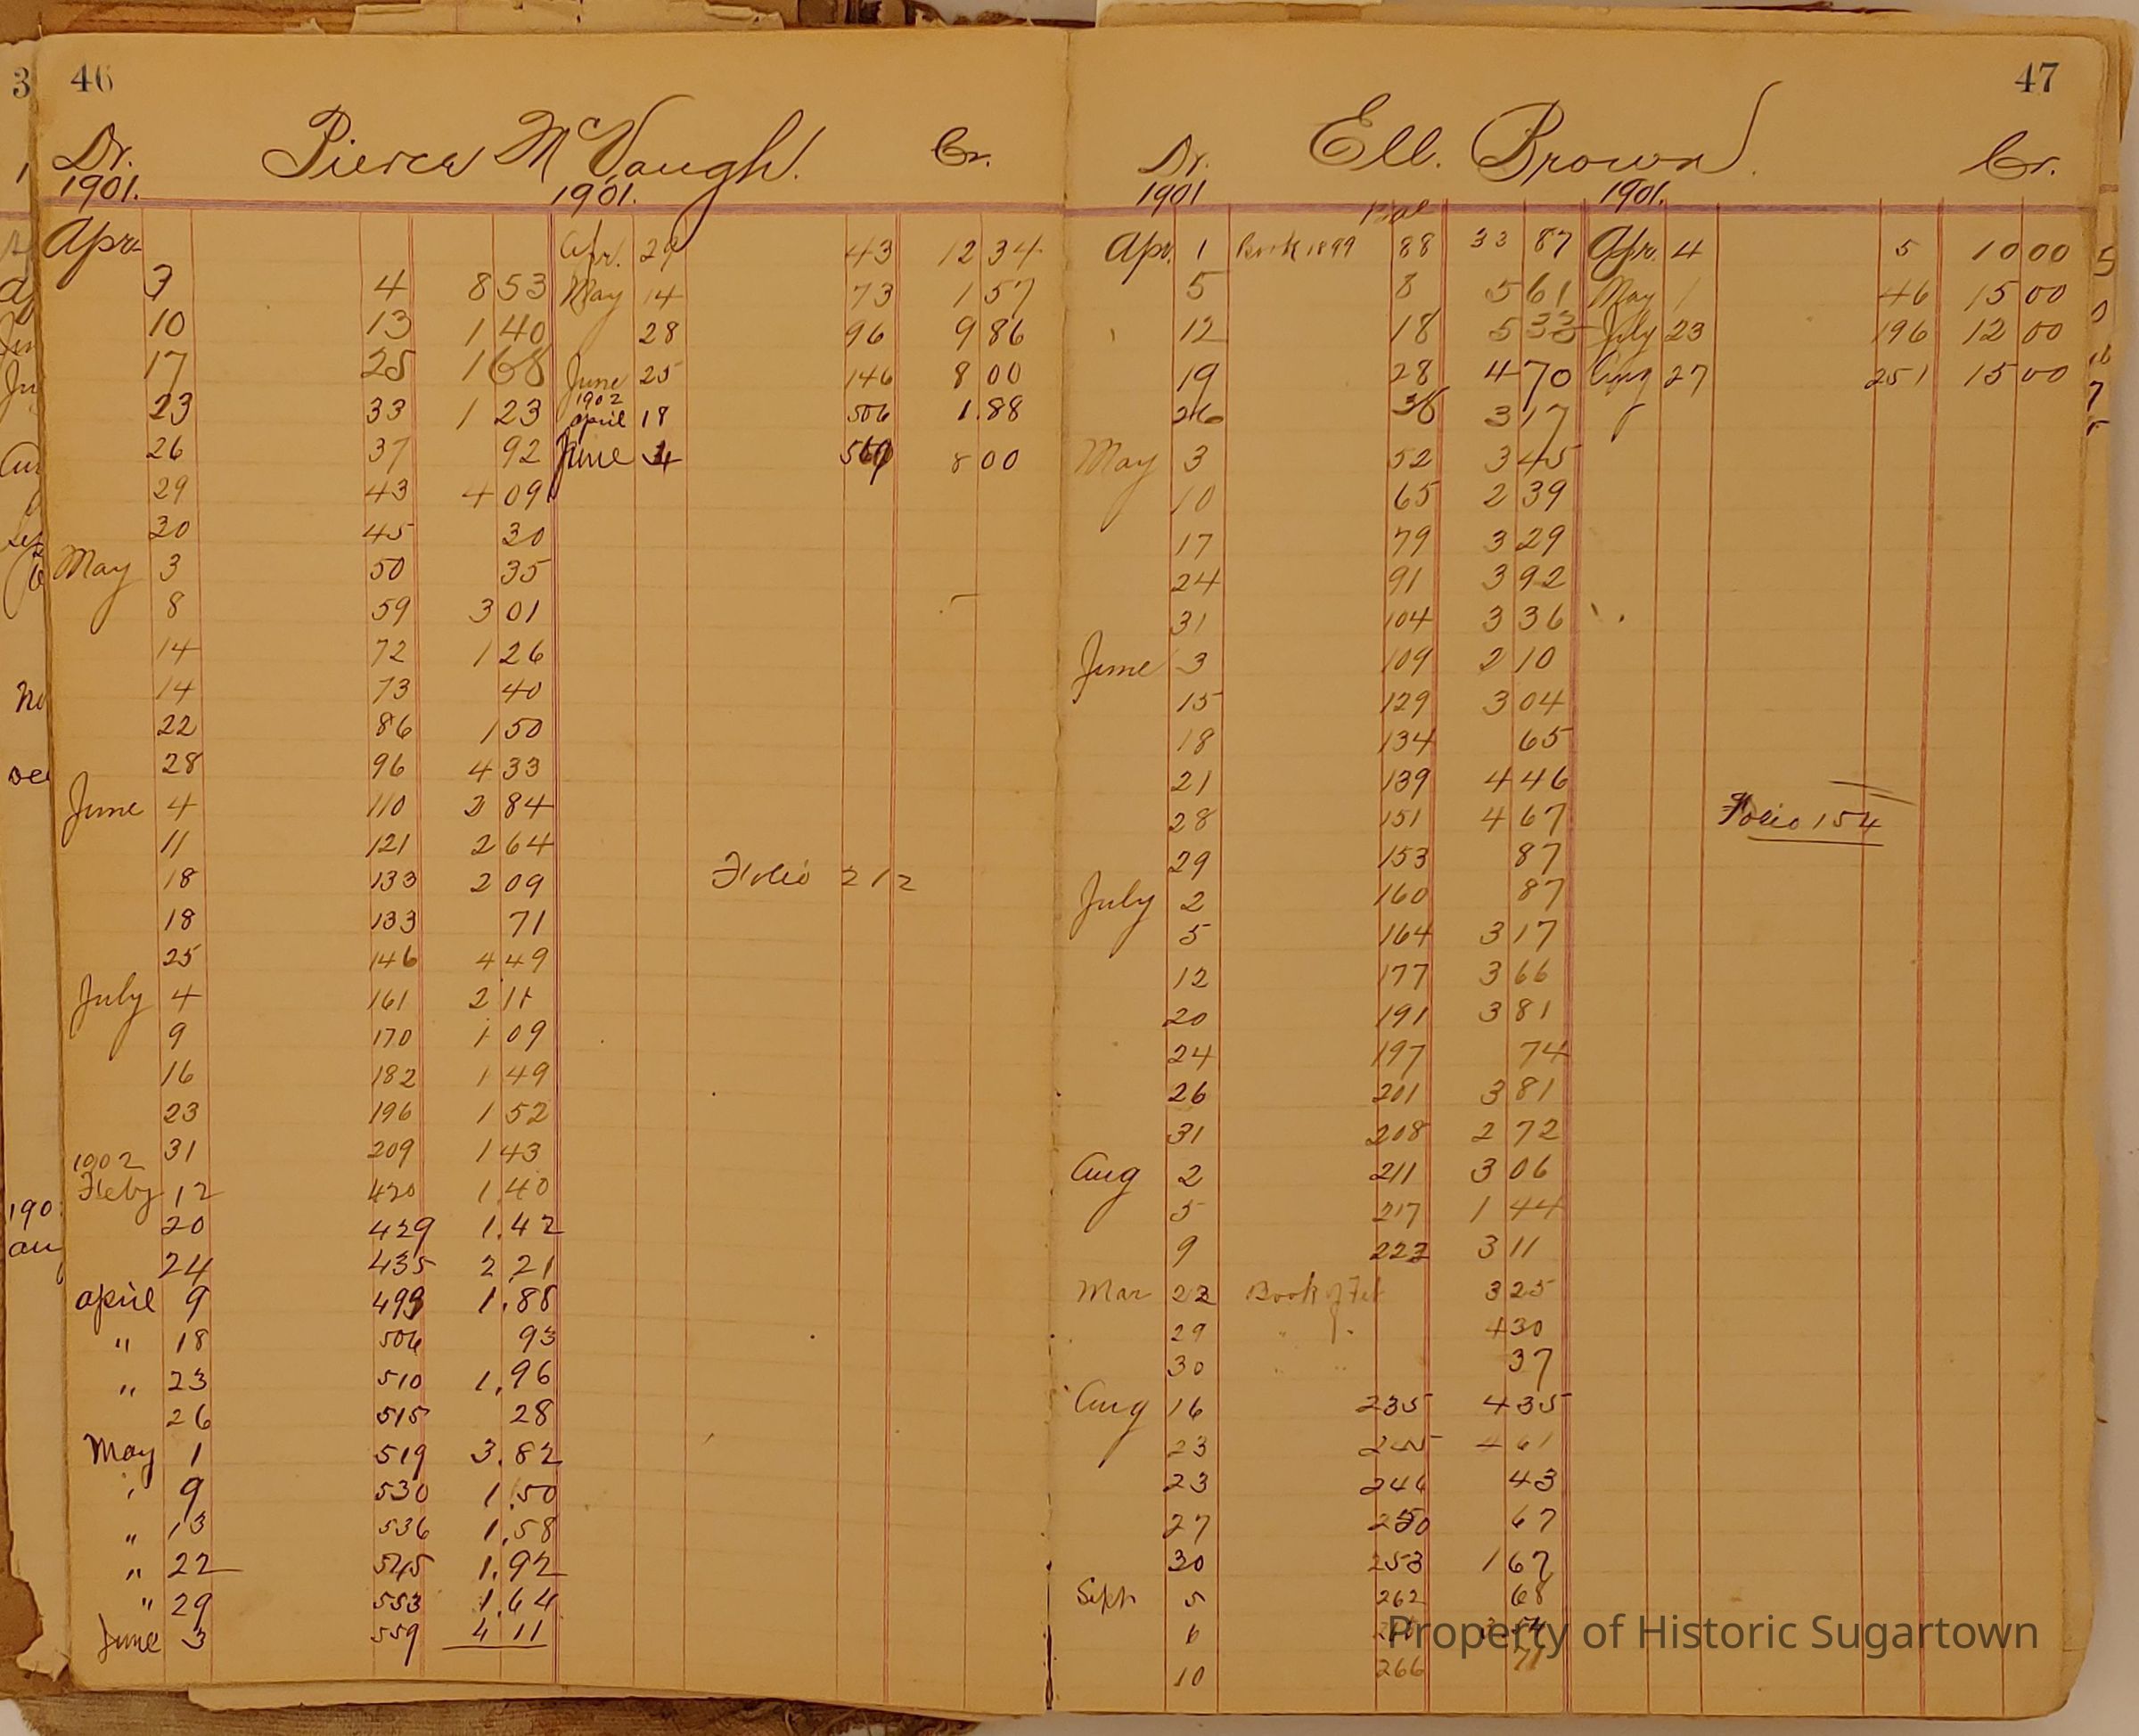 46
Dr. Pierce McVaugh. Cr.
1901. 1901.
Apr. Apr. 29 43 12 34
3 4 8 53 May 14 73 1 57
10 13 1 40 28 96 9 86
17 25 1 68 June 25 146 8 00
1902
23 33 1 23 april 18 506 1.88
26 37 92 June 8 00
29 43 4 09
30 45 30
May 3 50 35
8 59 3 01
14 72 1 26
14 73 40
22 86 1 50
28 96 4 33
June 4 110 2 84
11 121 2 64
18 133 2 09 Folio 212
18 133 71
25 146 4 49
July 4 161 2 11
9 170 1 09
16 182 1 49
23 196 1 52
31 209 1 43
1902
Feby 12 420 1.40
20 429 1.42
24 435 2 21
april 9 499 1.88
" 18 506 93
" 23 510 1.96
26 515 28
May 1 519 3.82
" 9 530 1.50
" 13 536 1.58
" 22 545 1.92
" 29 553 1.64
June 3 559 4 11
47
Dr. Ell. Brown. Cr.
1901 1901.
Apr. 1 Book 1899 88 33 87 Apr. 4 5 10 00
5 8 5 61 May 1 46 15 00
12 18 5 33 July 23 196 12 00
19 28 4 70 Aug 27 251 15 00
26 38 3 17
May 3 52 3 45
10 65 2 39
17 79 3 29
24 91 3 92
31 104 3 36
June 3 109 2 10
15 129 3 04
18 134 65
21 139 4 46
28 151 4 67 Folio 154
29 153 87
July 2 160 87
5 164 3 17
12 177 3 66
20 191 3 81
24 197 74
26 201 3 81
31 208 2 72
Aug 2 211 3 06
5 217 1 44
9 222 3 11
Mar 22 Book of Feb 3 25
29 " " 4 30
30 " " 37
Aug 16 235 4 35
23 245 4 61
23 246 43
27 250 67
30 253 1 67
Sept 5 262 68
6
10 266 71
Property of Historic Sugartown